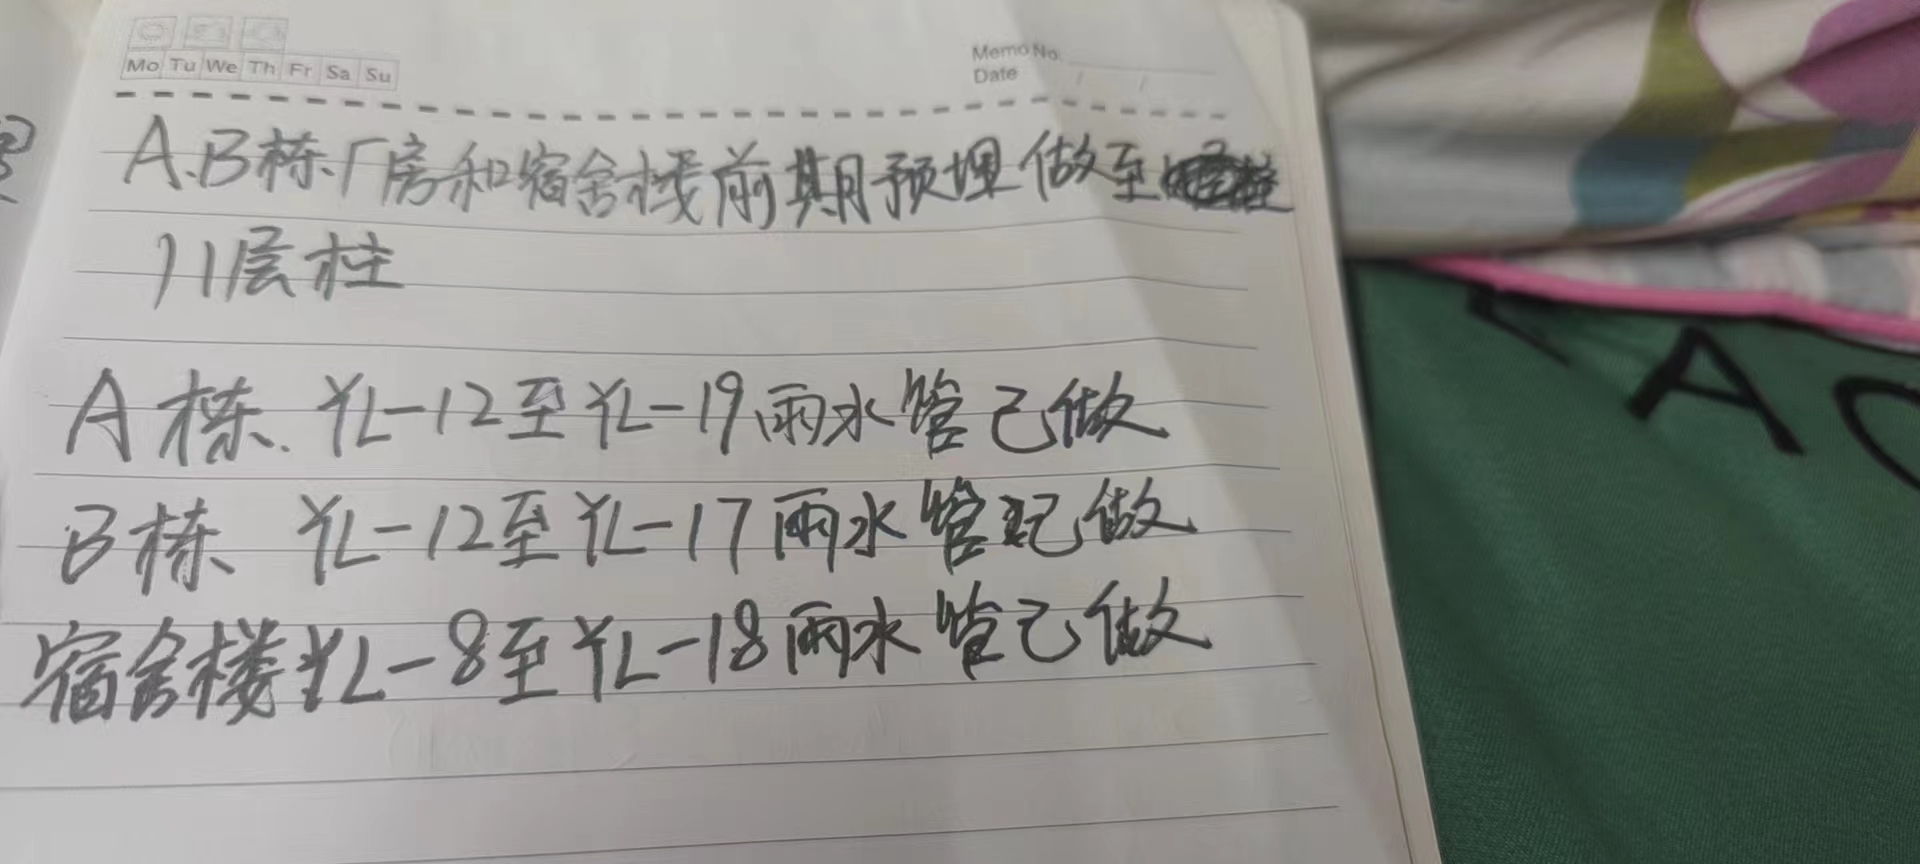 Mo Tu We Th Fr Sa Su
Memo No.
Date / /
A、B栋厂房和宿舍楼前期预埋做至
11层柱
A栋、YL-12至YL-19雨水管已做
B栋 YL-12至YL-17雨水管已做
宿舍楼YL-8至YL-18雨水管已做